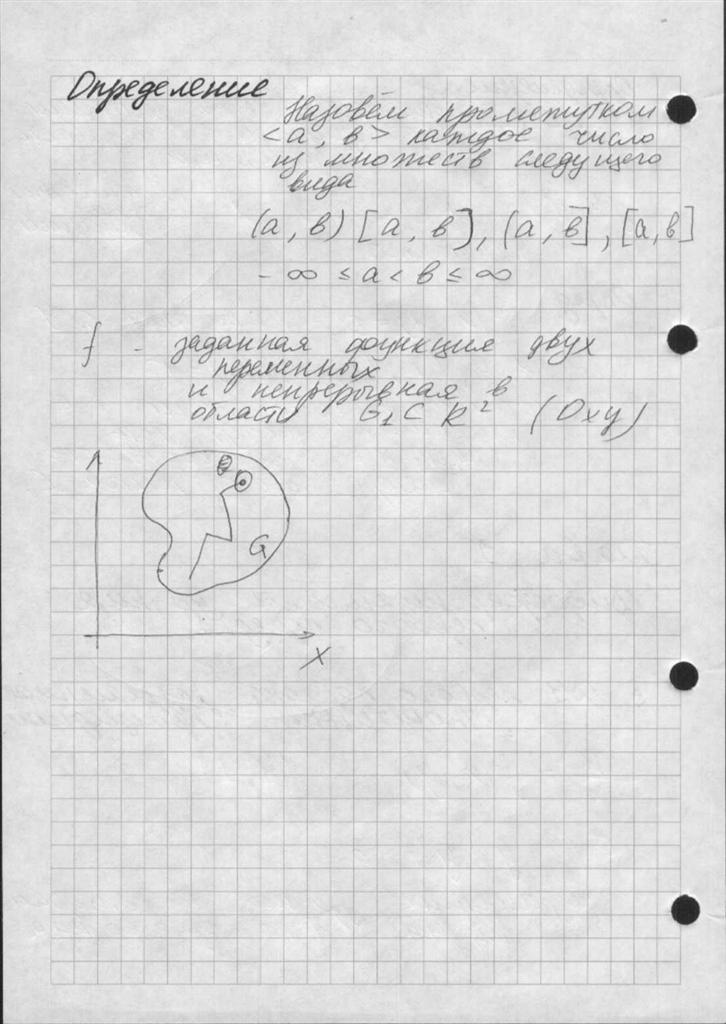 Определение
Назовём промежутком
<a, в> каждое число
из множеств следущего
вида
(a, в) [a, в], (a, в], [a, в]
- ∞ ≤ a < в ≤ ∞
f - заданная функция двух
переменных
и непрерывная в
области G₁ ⊂ R² (Oxy)
G
X